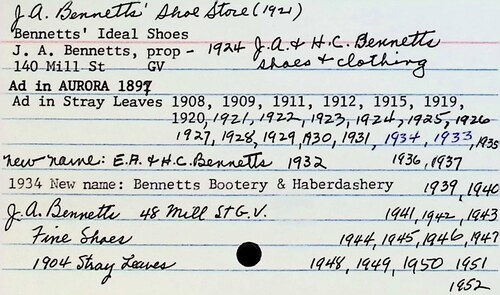 J.A. Bennetts' Shoe Store (1921)
Bennetts' Ideal Shoes
J. A. Bennetts, prop - 1924 J.A. & H.C. Bennetts
140 Mill St GV shoes & clothing
Ad in AURORA 1897
Ad in Stray Leaves 1908, 1909, 1911, 1912, 1915, 1919,
1920, 1921, 1922, 1923, 1924, 1925, 1926
1927, 1928, 1929, 1930, 1931, 1934, 1933, 1935
new name: E.A. & H.C. Bennetts 1932 1936, 1937
1934 New name: Bennetts Bootery & Haberdashery 1939, 1940
J.A. Bennetts 48 Mill St G.V. 1941, 1942, 1943
Fine Shoes 1944, 1945, 1946, 1947
1904 Stray Leaves 1948, 1949, 1950 1951
1952